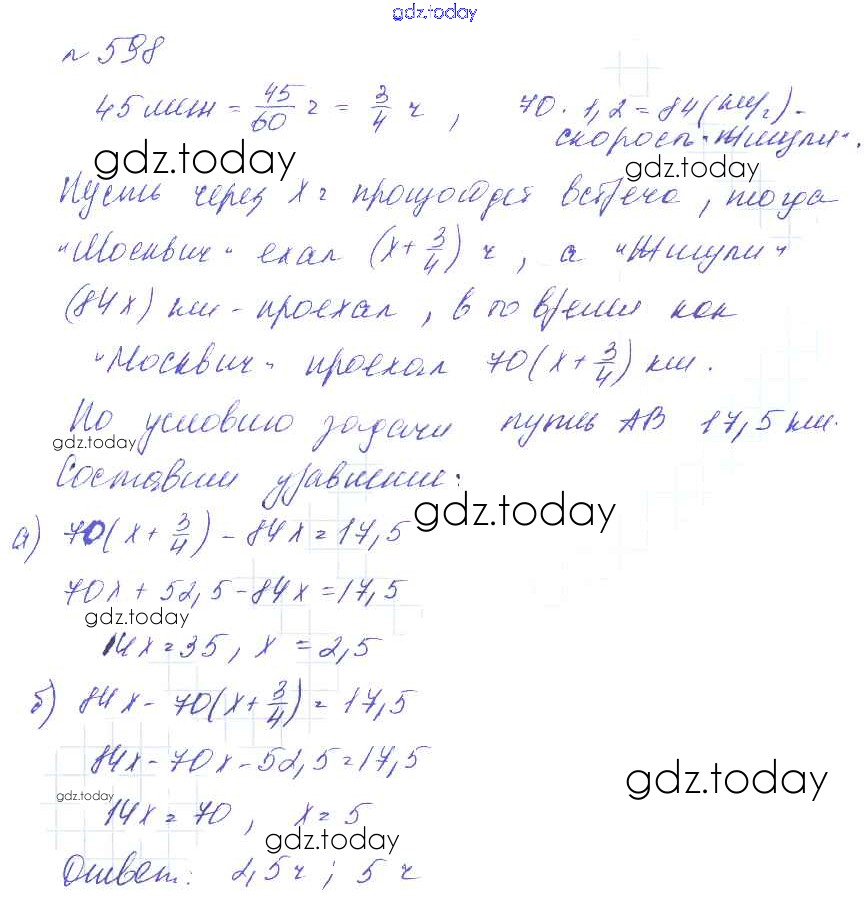 gdz.today
№ 598
45 мин = 45/60 ч = 3/4 ч , 70 · 1,2 = 84 (км/ч) -
скорость "Жигули".
gdz.today
gdz.today
Пусть через x ч произойдет встреча, тогда
"Москвич" ехал (x + 3/4) ч , а "Жигули"
(84x) км - проехал , в то время как
"Москвич" проехал 70(x + 3/4) км .
По условию задачи путь AB 17,5 км.
gdz.today
Составим уравнение:
gdz.today
а) 70(x + 3/4) - 84x = 17,5
70x + 52,5 - 84x = 17,5
gdz.today
14x = 35 , x = 2,5
gdz.today
б) 84x - 70(x + 3/4) = 17,5
84x - 70x - 52,5 = 17,5
gdz.today
gdz.today
14x = 70 , x = 5
gdz.today
Ответ: 2,5 ч ; 5 ч